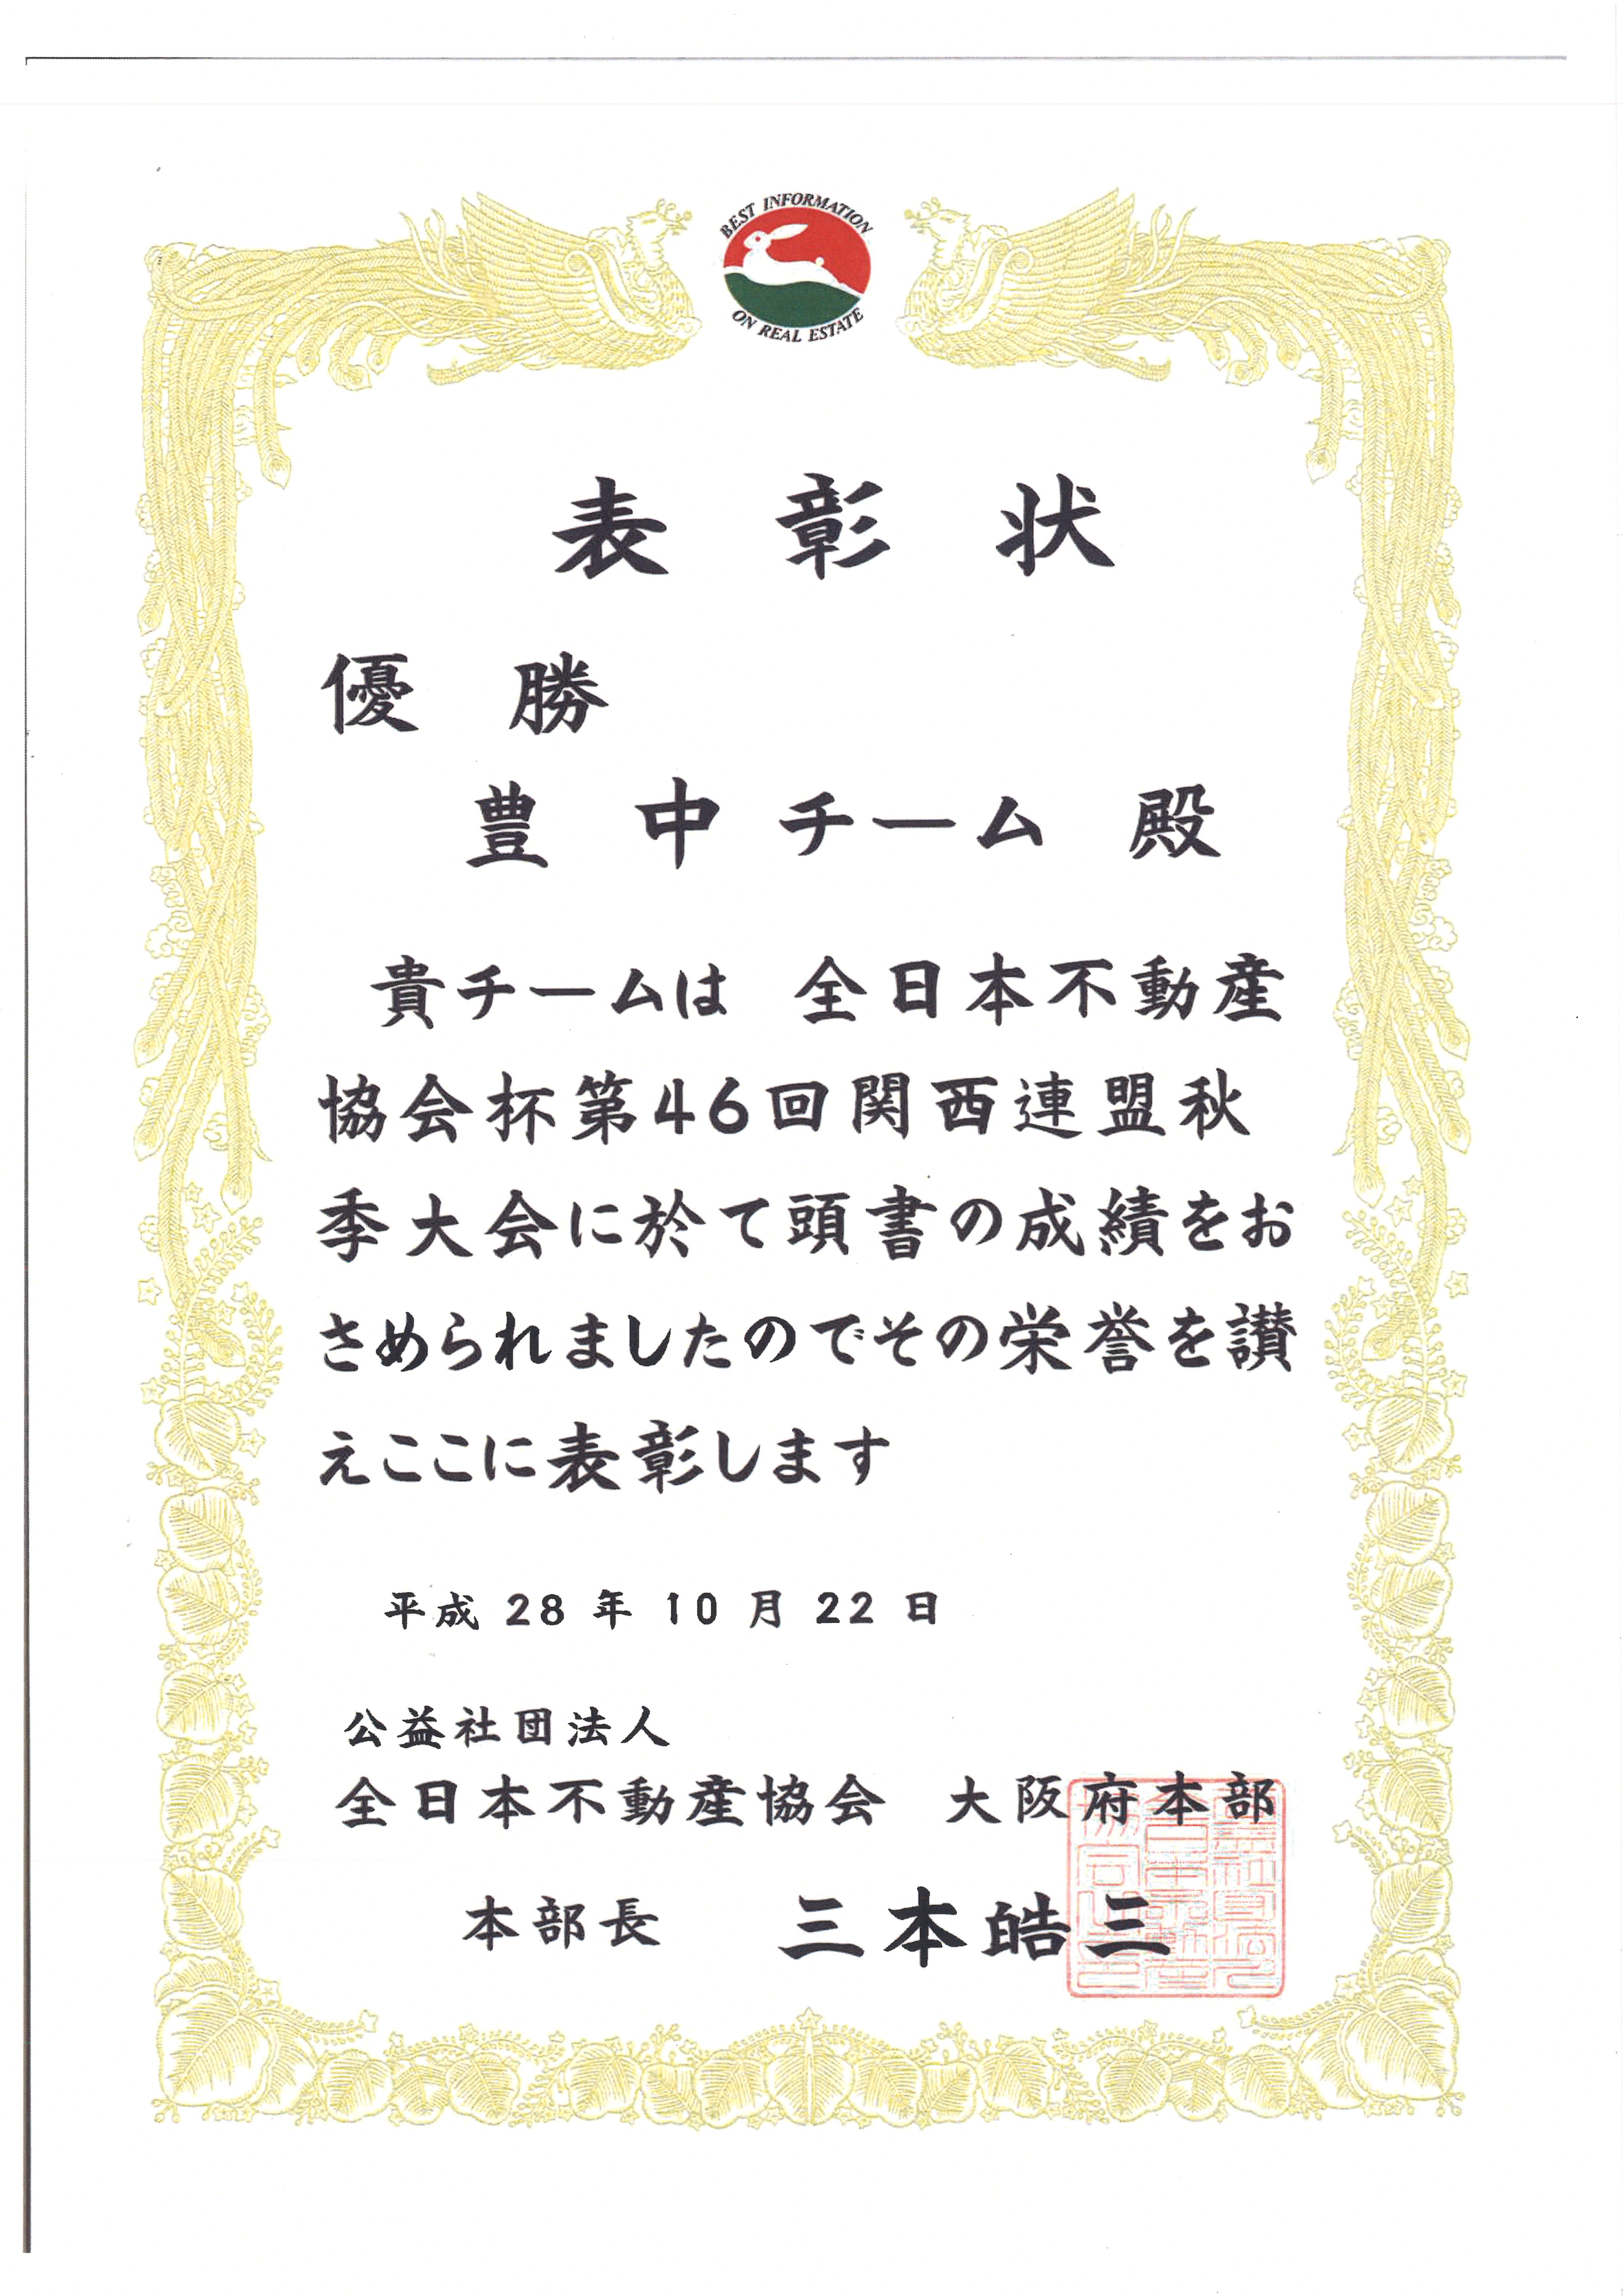 BEST INFORMATION
ON REAL ESTATE
表彰状
優勝
豊中チーム 殿
貴チームは 全日本不動産
協会杯第46回関西連盟秋
季大会に於て頭書の成績をお
さめられましたのでその栄誉を讃
えここに表彰します
平成 28 年 10 月 22 日
公益社団法人
全日本不動産協会 大阪府本部
本部長 三本皓三